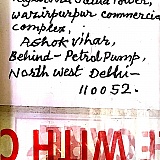 Tower,
wazirpurpur commercial
complex,
Ashok vihar,
Behind- Petrol Pump,
North West Delhi-
110052.
WITH C